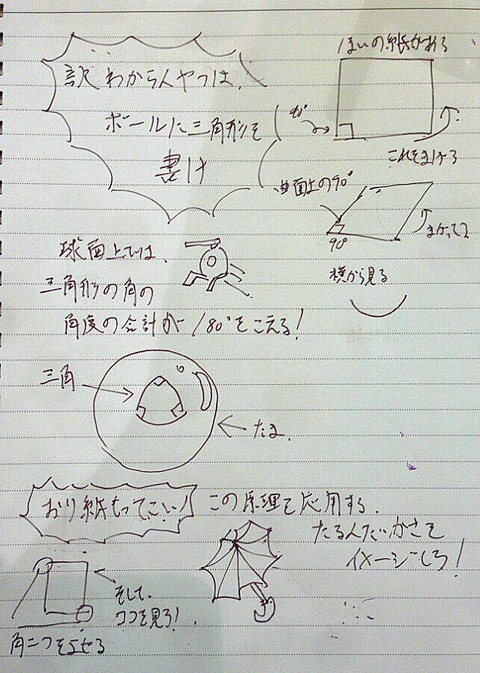 訳わからんやつは、
ボールに三角形を
書け
はいの紙がある
90°
これをまげる
曲面上の90°
90°
まがってる
横から見る
球面上では、
三角形の角の
角度の合計が180°をこえる!
三角
たま
おり紙もってこい!
この原理を応用する。
たるんだかさを
イメージしろ!
そして
ココを見ろ!
角二つをよせる